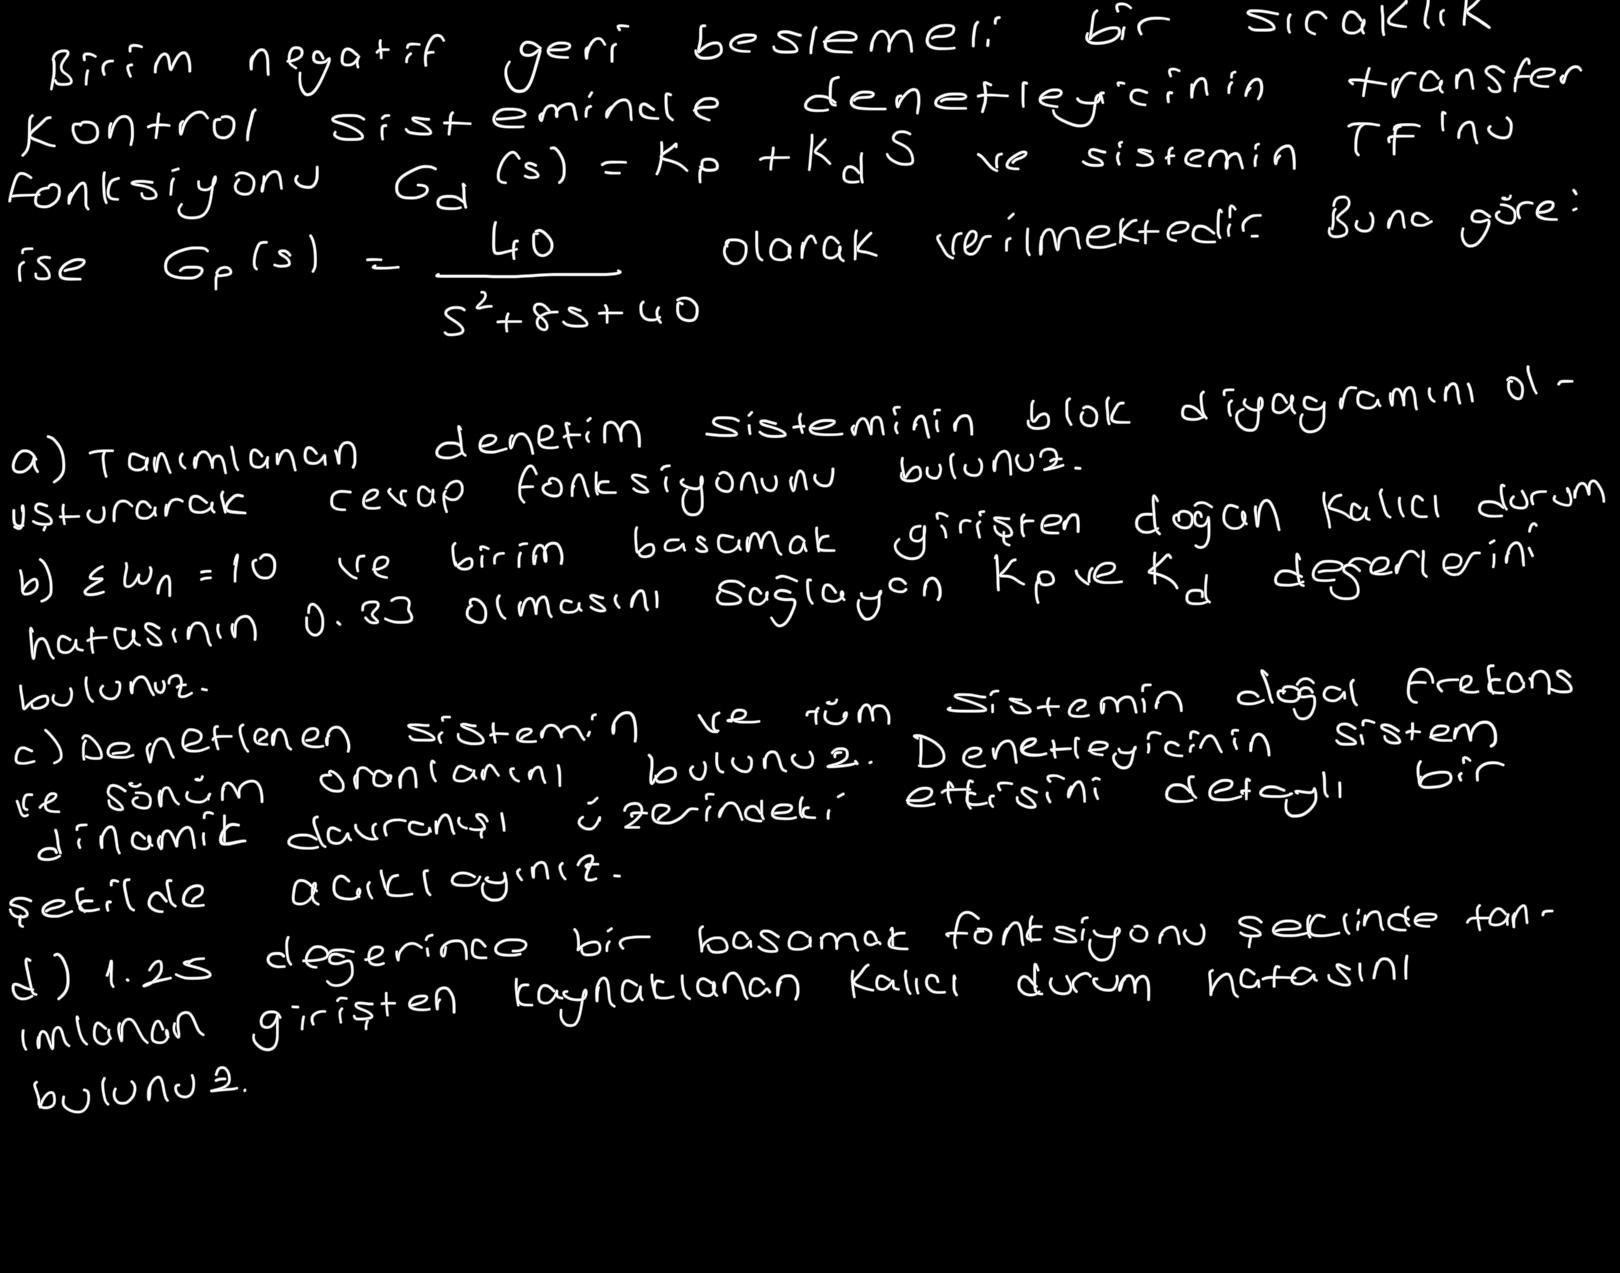 Birim negatif geri beslemeli bir sıcaklık
Kontrol sisteminde denetleyicinin transfer
fonksiyonu G_d(s) = Kp + K_d S ve sistemin TF'nu
ise G_p(s) = 40 / (s² + 8s + 40) olarak verilmektedir. Buna göre:
a) Tanımlanan denetim sisteminin blok diyagramını ol-
uşturarak cevap fonksiyonunu bulunuz.
b) ξ Wn = 10 ve birim basamak girişten doğan Kalıcı durum
hatasının 0.33 olmasını sağlayan Kp ve K_d değerlerini
bulunuz.
c) Denetlenen sistemin ve tüm sistemin doğal frekans
ve sönüm oranlarını bulunuz. Denetleyicinin sistem
dinamik davranışı üzerindeki etkisini detaylı bir
şekilde açıklayınız.
d) 1.25 değerince bir basamak fonksiyonu şeklinde tan-
ımlanan girişten kaynaklanan Kalıcı durum hatasını
bulunuz.